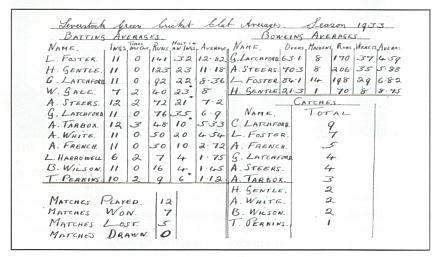 Leverstock Green Cricket Club Averages. Season 1933
BATTING AVERAGES
NAME. INGS. TIMES NOT OUT. RUNS MOST IN AN INGS AVERAGE
L. FOSTER. 11 0 141 32 12.82
H. GENTLE. 11 0 123 23 11.18
C. LATCHFORD 11 0 92 22 8.36
W. GALE. 7 2 40 23* 8
A. STEERS. 12 2 72 21* 7.2
G. LATCHFORD. 11 0 76 35 6.9
A. TARBOX. 12 3 48 10 5.33
A. WHITE. 11 0 50 20 4.54
A. FRENCH. 11 0 30 10 2.72
L. HARROWELL 6 2 7 4 1.75
B. WILSON. 11 0 16 4 1.45
T. PERKINS. 10 2 9 6* 1.12
MATCHES PLAYED. 12
MATCHES WON. 7
MATCHES LOST. 5
MATCHES DRAWN. 0
BOWLING AVERAGES
NAME. OVERS. MAIDENS. RUNS. WKTS AVERAGE
G. LATCHFORD 63.1 8 170 37 4.59
A. STEERS. 70.3 8 206 35 5.88
L. FOSTER 84.1 14 198 29 6.82
H. GENTLE 21.3 1 70 8 8.75
CATCHES.
NAME. TOTAL
C. LATCHFORD. 9
L. FOSTER. 7
A. FRENCH. 5
G. LATCHFORD 4
A. STEERS. 4
A. TARBOX 3
H. GENTLE. 2
A. WHITE. 2
B. WILSON. 2
T. PERKINS. 1